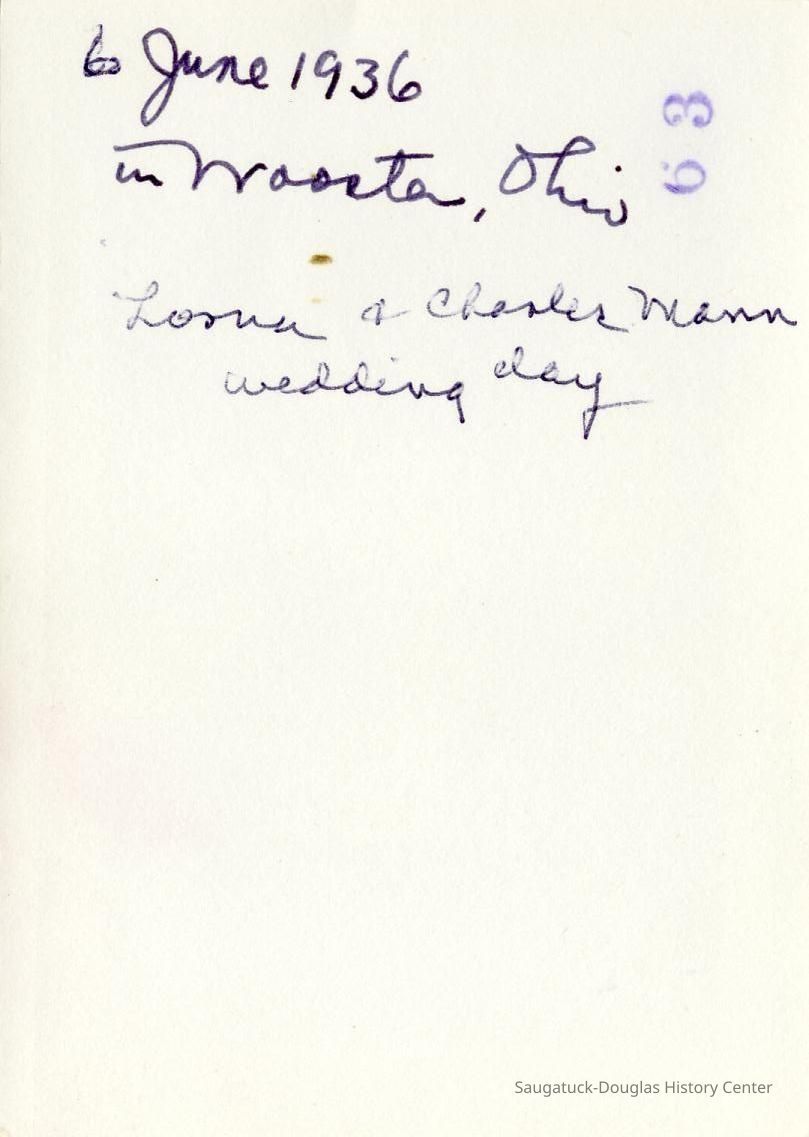 6 June 1936
in Wooster, Ohio
63
Lorna & Charles Mann
wedding day
Saugatuck-Douglas History Center